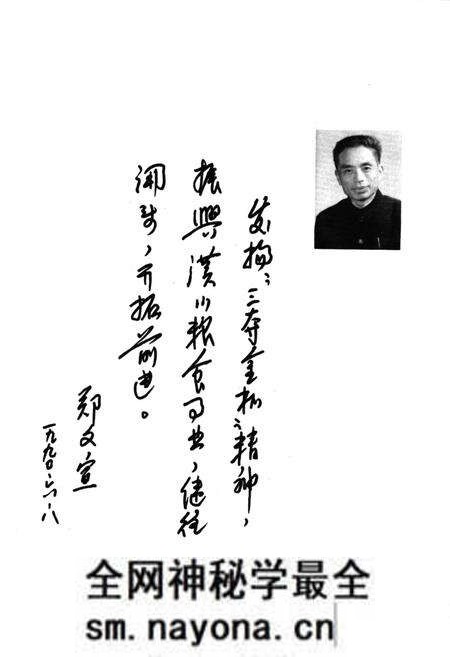 发扬“三夺金杯”精神，
振興漢川粮食事业，继往
開来，开拓前进。
郑文宣
一九九〇.六.八
全网神秘学最全
sm.nayona.cn